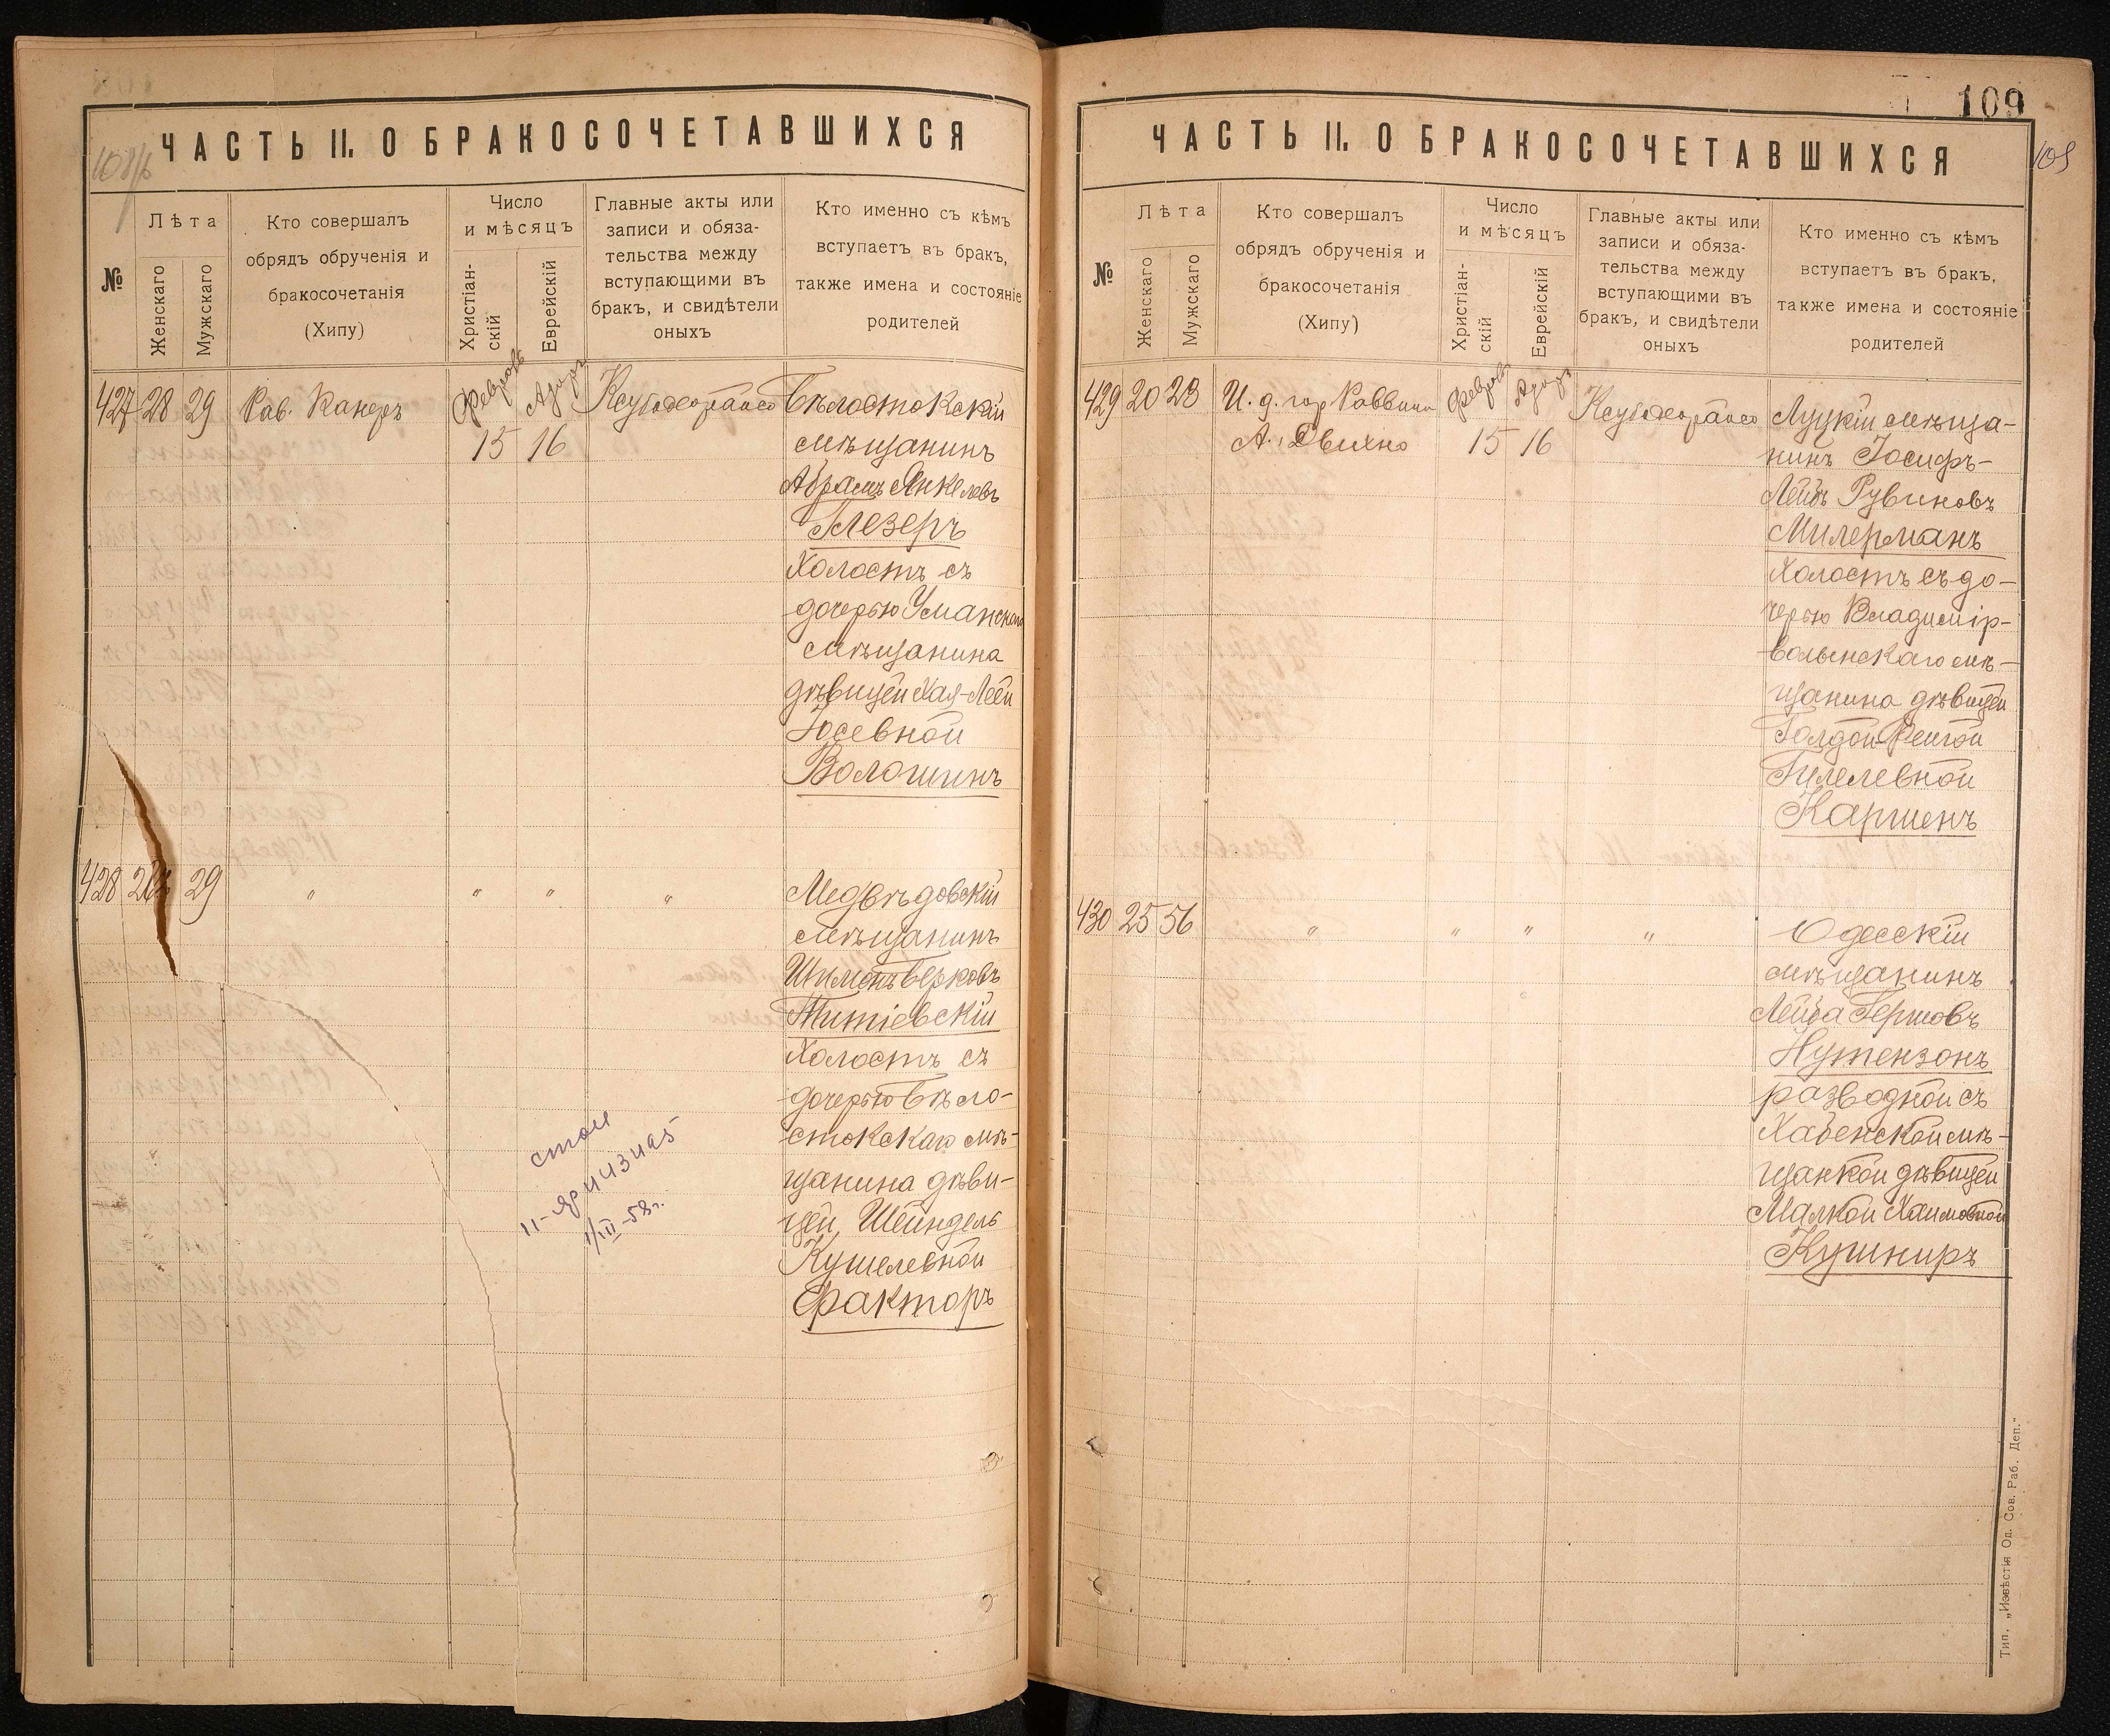 ЧАСТЬ II. О БРАКОСОЧЕТАВШИХСЯ
№
Лѣта
Женскаго
Мужскаго
Кто совершалъ
обрядъ обрученія и
бракосочетанія
(Хипу)
Число
и мѣсяцъ
Христіан-
скій
Еврейскій
Главные акты или
записи и обяза-
тельства между
вступающими въ
бракъ, и свидѣтели
оныхъ
Кто именно съ кѣмъ
вступаетъ въ бракъ,
также имена и состояніе
родителей
427 28 29 Рав. Канеръ
Февраль Адаръ
15 16
Бѣлостокскій
мѣщанинъ
Абрамъ Янкелевъ
Глезеръ
Холостъ съ
дочерью Уманскаго
мѣщанина
дѣвицей Хая-Леей
Іосевной
Волошинъ
428 29 " " " "
Медвѣдовскій
мѣщанинъ
Шимонъ Берковъ
Титіевскій
Холостъ съ
дочерью Бѣло-
стокскаго мѣ-
щанина дѣви-
цей, Шейндель
Кушелевной
Факторъ
1/III-58г.
109
109
ЧАСТЬ II. О БРАКОСОЧЕТАВШИХСЯ
№
Лѣта
Женскаго
Мужскаго
Кто совершалъ
обрядъ обрученія и
бракосочетанія
(Хипу)
Число
и мѣсяцъ
Христіан-
скій
Еврейскій
Главные акты или
записи и обяза-
тельства между
вступающими въ
бракъ, и свидѣтели
оныхъ
Кто именно съ кѣмъ
вступаетъ въ бракъ,
также имена и состояніе
родителей
429 20 23 И. д. гор Раввина
А.
Февраль Адаръ
15 16
Луцкій мѣща-
нинъ Іосифъ-
Лейбъ Рувиновъ
Милерманъ
Холостъ съ до-
черью Владимір-
волынскаго мѣ-
щанина дѣвицей
Голдой-Рейзой
Гилелевной
Каршенъ
430 25 56 " " " "
Одесскій
мѣщанинъ
Лейба Гершовъ
Нутензонъ
разводной съ
Хабенской мѣ-
щанкой дѣвицей
Малкой Хаимовной
Кушниръ
Тип. „Извѣстія Од. Сов. Раб. Деп."